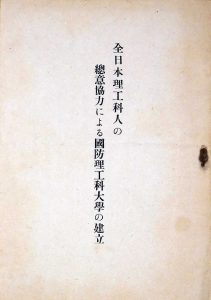 全日本理工科人の
總意協力による國防理工科大學の建立